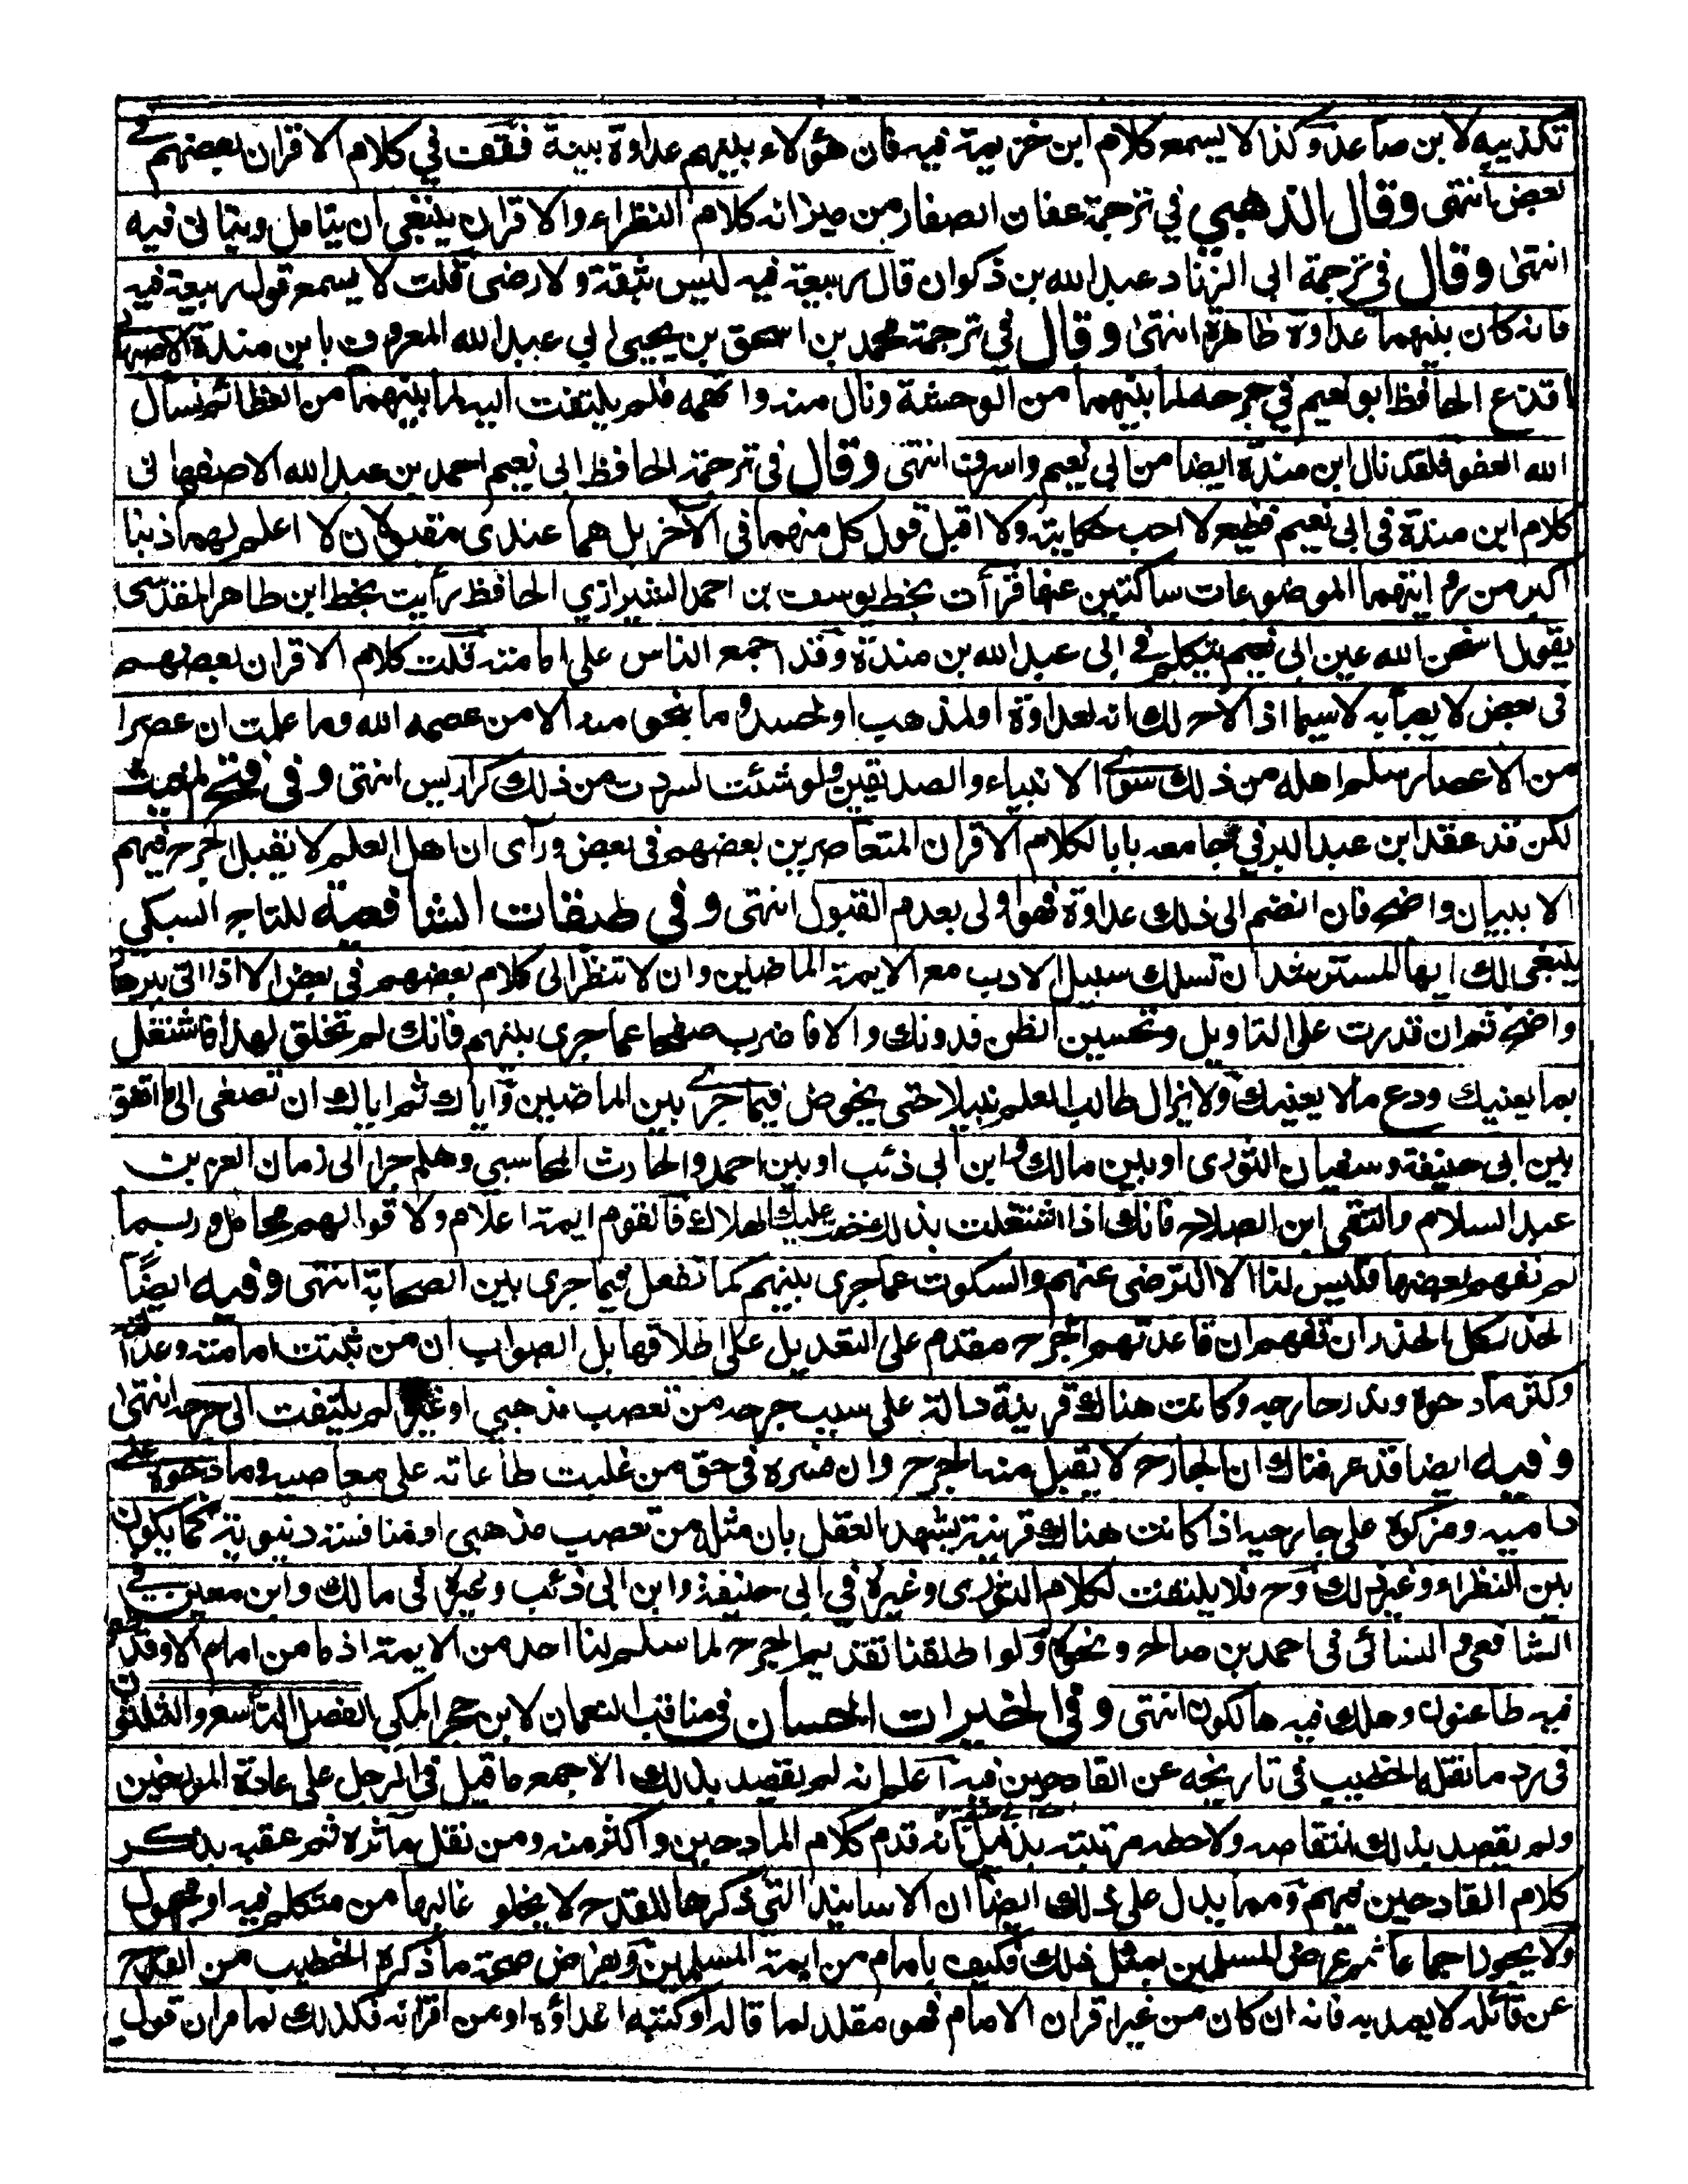 تكذيبه لابن صاعد وكذا لا يسمع كلام ابن خزيمة فيه فان هؤلاء بينهم عداوة بينة فقف في كلام الاقران بعضهم في
بعض انتهى وقال الذهبي في ترجمة عفان الصفار من ميزانه كلام النظراء والاقران ينبغي ان يتامل ويتانى فيه
انتهى وقال في ترجمة ابى الزناد عبد الله بن ذكوان قال ربيعة فيه ليس بثقة ولا رضى قلت لا يسمع قول ربيعة فيه
فانه كان بينهما عداوة ظاهرة انتهى وقال في ترجمة محمد بن اسحق بن يحيى ابي عبد الله المعروف بابن مندة الاصبهاني
اقذع الحافظ ابو نعيم في جرحه لما بينهما من الوحشة ونال منه واتهمه فلم يلتفت اليه لما بينهما من العظائم نسأل
الله العفو فلقد نال ابن مندة ايضا من ابي نعيم واسرف انتهى وقال في ترجمة الحافظ ابى نعيم احمد بن عبد الله الاصفهانى
كلام ابن مندة فى ابى نعيم فظيع لا احب حكايته ولا اقبل قول كل منهما فى الآخر بل هما عندى مقبولان لا اعلم لهما ذنبا
اكبر من روايتهما الموضوعات ساكتين عنها قرأت بخط يوسف بن احمد الشيرازي الحافظ رأيت بخط ابن طاهر المقدسى
يقول اسخن الله عين ابى نعيم يتكلم في ابى عبد الله بن مندة وقد اجمع الناس على امامته قلت كلام الاقران بعضهم
فى بعض لا يعبأ به لا سيما اذا لاح لك انه لعداوة او لمذهب او لحسد وما ينجو منه الا من عصمه الله وما علمت ان عصرا
من الاعصار سلم اهله من ذلك سوى الانبياء والصديقين ولو شئت لسردت من ذلك كراريس انتهى وفى فتح المغيث
لكن قد عقد ابن عبد البر في جامعه بابا لكلام الاقران المتعاصرين بعضهم فى بعض ورآى ان اهل العلم لا تقبل الجرح فيهم
الا ببيان واضح فان انضم الى ذلك عداوة فهو اولى بعدم القبول انتهى وفى طبقات الشافعية للتاج السبكي
ينبغى لك ايها المسترشد ان تسلك سبيل الادب مع الايمة الماضين وان لا تنظر الى كلام بعضهم في بعض الا اذا اتى ببرهان
واضح ثم ان قدرت على التاويل وتحسين الظن فدونك والا فاضرب صفحا عما جرى بينهم فانك لم تخلق لهذا فاشتغل
بما يعنيك ودع ما لا يعنيك ولا يزال طالب العلم نبيلا حتى يخوض فيما جرى بين الماضين واياك ثم اياك ان تصغى الى ما اتفق
بين ابى حنيفة وسفيان الثورى او بين مالك وابن ابى ذئب او بين احمد والحارث المحاسبي وهلم جرا الى زمان العز بن
عبد السلام والتقى ابن الصلاح فانك اذا اشتغلت بذلك خفت عليك الهلاك فالقوم ايمة اعلام ولاقوالهم محامل وربما
لم نفهم بعضها فليس لنا الا الترضى عنهم والسكوت عما جرى بينهم كما نفعل فيما جرى بين الصحابة انتهى وفيه ايضًا
الحذر كل الحذر ان تفهم ان قاعدتهم الجرح مقدم على التعديل على اطلاقها بل الصواب ان من ثبتت امامته وعدالته
وكثر مادحوه وندر جارحه وكانت هناك قرينة دالة على سبب جرحه من تعصب مذهبي او غيره لم يلتفت الى جرحه انتهى
وفيه ايضا قد عرفناك ان الجارح لا يقبل منه الجرح وان فسره فى حق من غلبت طاعاته على معاصيه ومادحوه على
ذاميه ومزكوه على جارحيه اذا كانت هناك قرينة يشهد العقل بان مثلها من تعصب مذهبى او منافسة دنيوية كما يكون
بين النظراء وغير ذلك وح فلا يلتفت لكلام الثورى وغيره في ابى حنيفة وابن ابى ذئب وغيره فى مالك وابن معين في
الشافعى والنسائى فى احمد بن صالح ونحوه ولو اطلقنا تقديم الجرح لما سلم لنا احد من الايمة اذ ما من امام الا وقد طعن
فيه طاعنون وهلك فيه هالكون انتهى وفى الخيرات الحسان فى مناقب النعمان لابن حجر المكي الفصل التاسع والثلثون
فى رد ما نقله الخطيب فى تاريخه عن القادحين فيه اعلم انه لم يقصد بذلك الا جمع ما قيل فى الرجل على عادة المورخين
ولم يقصد بذلك انتقاصه ولا حطه مرتبته بدليل انه قدم كلام المادحين واكثر منه ومن نقل مآثره ثم عقبه بذكر
كلام القادحين فيهم ومما يدل على ذلك ايضا ان الاسانيد التى ذكرها للقدح لا يخلو غالبها من متكلم فيه او مجهول
ولا يجوز اجماعا ثم عرض المسلمين بمثل ذلك فكيف بامام من ايمة المسلمين وبفرض صحة ما ذكره الخطيب من القدح
عن قائله لا يعتد به فانه ان كان من غير اقران الامام فهو مقلد لما قاله او كتبه اعداؤه او من اقرانه فكذلك لما مر ان قول